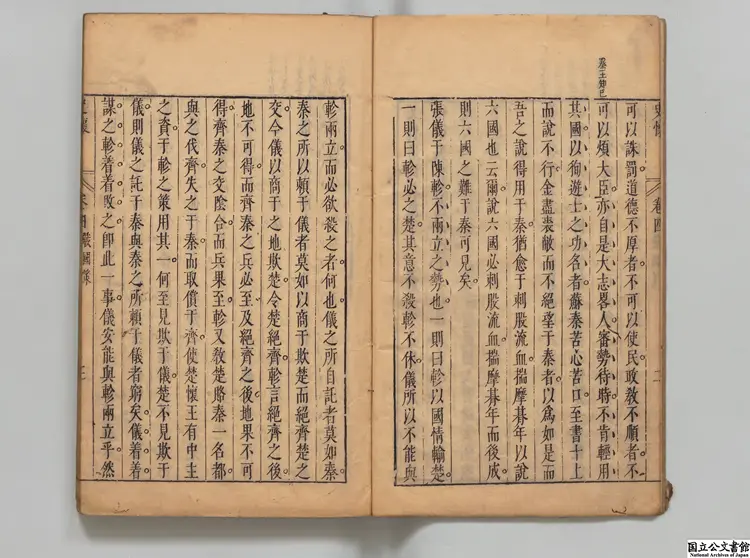 秦王知己
史懷
卷四
二
可以誅罰道德不厚者不可以使民政教不順者不
可以煩大臣亦自是大志畧人審勢待時不肯輕用
其國以徇遊士之功名者蘇秦苦心苦口至書十上
而說不行金盡裘敝而不絕望于秦者以爲如是而
吾之說得用于秦猶愈于刺股流血揣摩朞年以說
六國也云爾說六國必刺股流血揣摩朞年而後成
則六國之難于秦可見矣
張儀于陳軫不兩立之勢也一則曰軫以國情輸楚
一則曰軫必之楚其意不殺軫不休儀所以不能與
軫兩立而必欲殺之者何也儀之所自託者莫如秦
秦之所以賴于儀者莫如以商于欺楚而絕齊楚之
交今儀以商于之地欺楚令楚絕齊軫言絕齊之後
地不可得而齊秦之兵必至及絕齊之後地果不可
得齊秦之交陰合而兵果至軫又教楚賂秦一名都
與之伐齊失之于秦而取償于齊使楚懷王有中主
之資于軫之策用其一何至見欺于儀楚不見欺于
儀則儀之託于秦與秦之所賴于儀者窮矣儀着着
謀之軫着着敗之卽此一事儀安能與軫兩立乎然
史懷
卷四戰國策
三
国立公文書館
National Archives of Japan